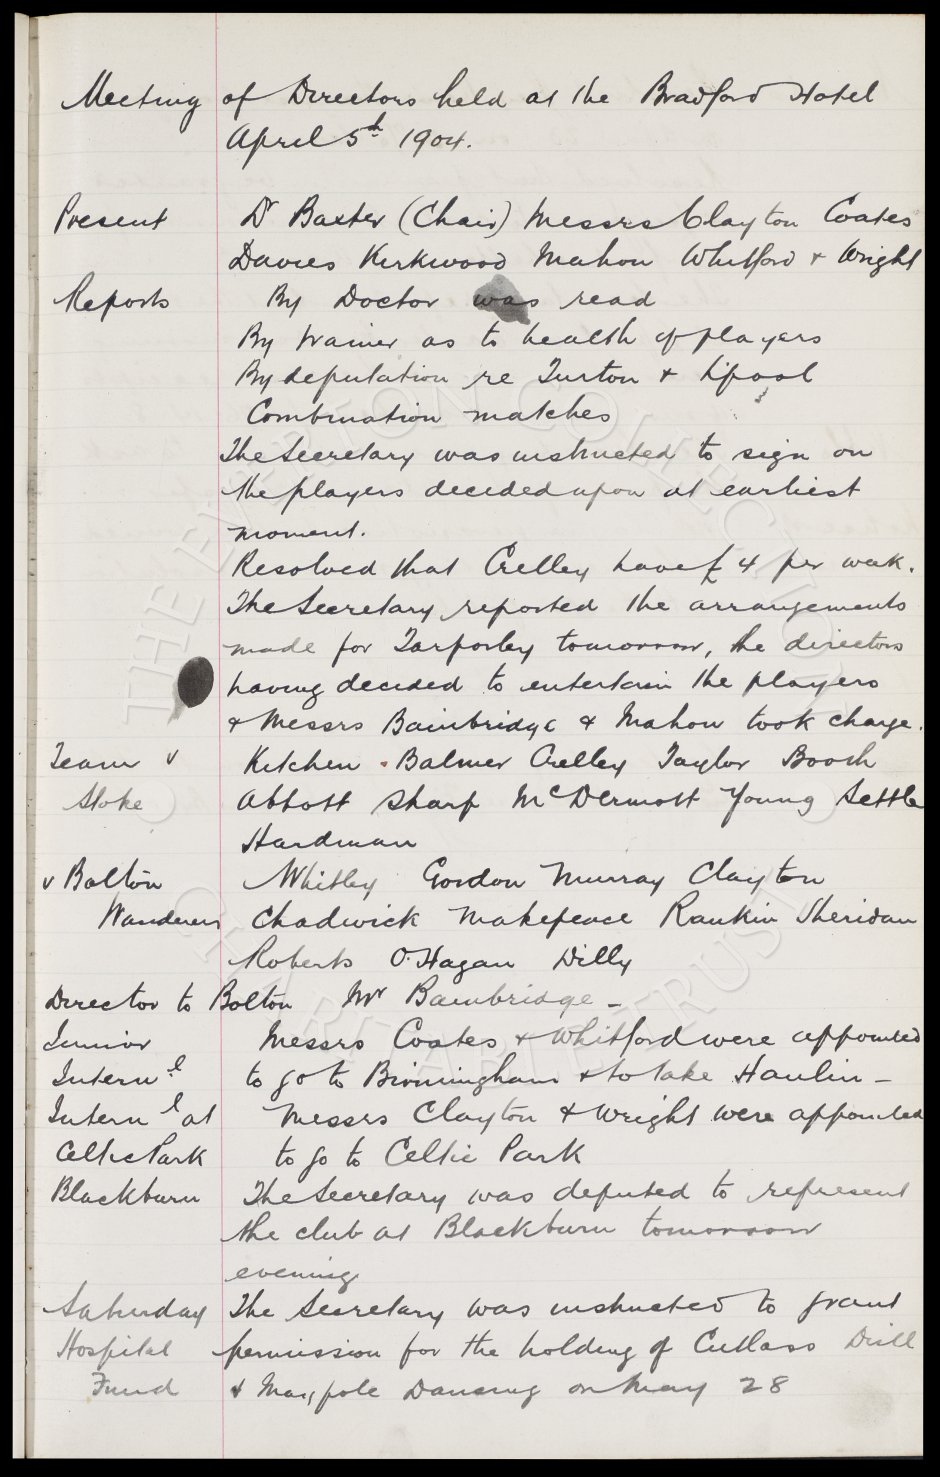 Meeting of Directors held at the Bradford Hotel
April 5th 1904.
Present Dr Baxter (Chair) Messrs Clayton Coates
Davies Kirkwood Mahon Whitford & Wright
Reports By Doctor was read
By trainer as to health of players
By deputation re Turton & L'pool
Combination matches
The Secretary was instructed to sign on
the players decided upon at earliest
moment.
Resolved that Crelley have £4 per week.
The Secretary reported the arrangements
made for Tarporley tomorrow, the directors
having decided to entertain the players
& Messrs Bainbridge & Mahon took charge.
Team v Kitchen Balmer Crelley Taylor Booth
Stoke Abbott Sharp McDermott Young Settle
Hardman
v Bolton Whitley Gordon Murray Clayton
Wanderers Chadwick Makepeace Rankin Sheridan
Roberts O'Hagan Dilly
Director to Bolton Mr Bainbridge -
Junior Messrs Coates & Whitford were appointed
Internl to go to Birmingham & to take Haulin -
Internl at Messrs Clayton & Wright were appointed
Celtic Park to go to Celtic Park
Blackburn The Secretary was deputed to represent
the club at Blackburn tomorrow
evening
Saturday The Secretary was instructed to grant
Hospital permission for the holding of Cutlass Drill
Fund & Maypole Dancing on May 28
THE EVERTON COLLECTION
CHARITABLE TRUST